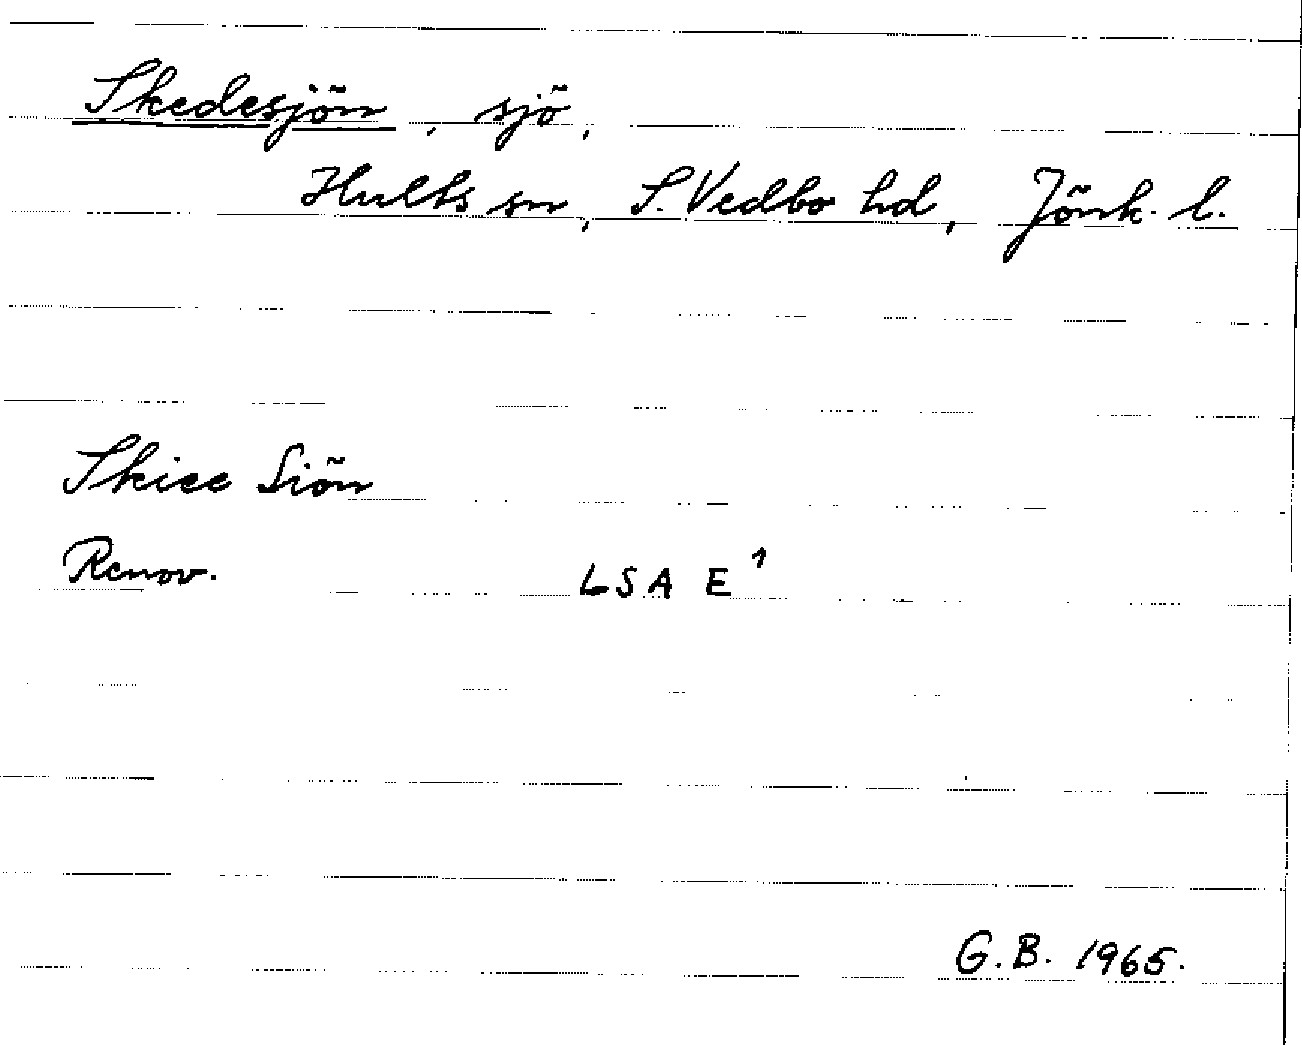 Skedesjön, sjö,
Hults sn, S. Vedbo hd, Jönk. l.
Skiee Siön
Renov. LSA E¹
G.B. 1965.